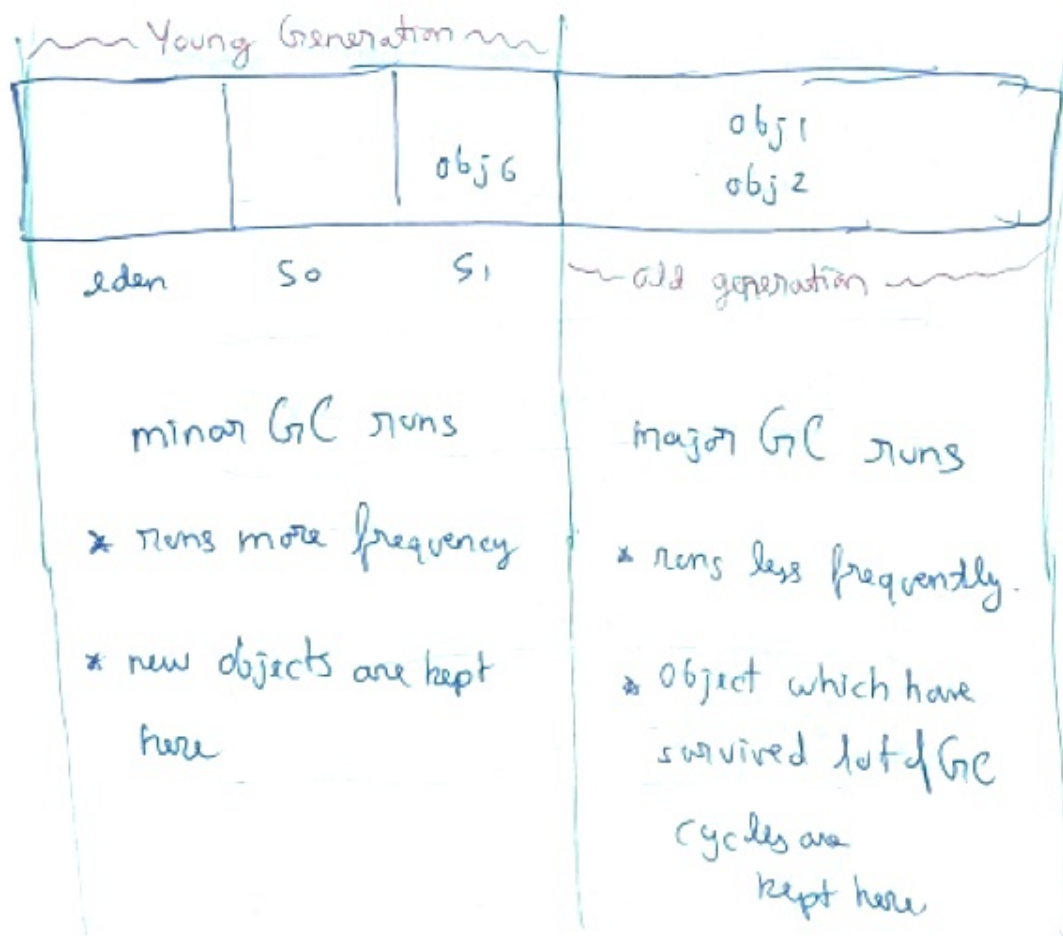 Young Generation
obj 1
obj 6
obj 2
eden S0 S1 old generation
minor GC runs
* runs more frequency
* new objects are kept
here
major GC runs
* runs less frequently.
* object which have
survived lot of GC
cycles are
kept here